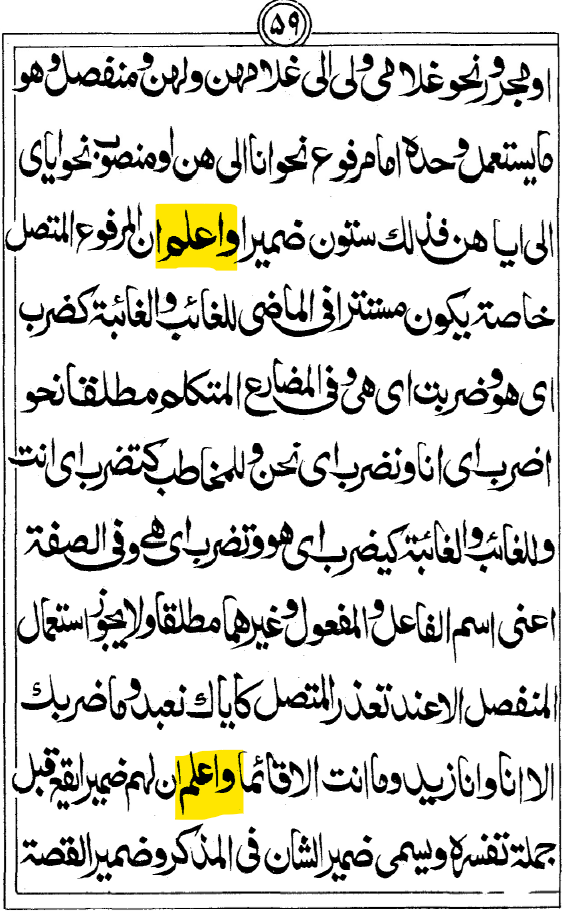 ۵۹
او مجرور نحو غلامی ولی الی غلامهن ولهن ومنفصل وهو
ما یستعمل وحده اما مرفوع نحو انا الی هن او منصوب نحو ایای
الی ایاهن فذلك ستون ضمیرا واعلم ان المرفوع المتصل
خاصة یكون مستترا فی الماضی للغائب والغائبة كضرب
ای هو وضربت ای هی وفی المضارع المتكلم مطلقا نحو
اضرب ای انا ونضرب ای نحن وللمخاطب كتضرب ای انت
وللغائب والغائبة كیضرب ای هو وتضرب ای هی وفی الصفة
اعنی اسم الفاعل والمفعول وغیرهما مطلقا ولا یجوز استعمال
المنفصل الا عند تعذر المتصل كایاك نعبد وما ضربك
الا انا وانا زید وما انت الا قائما واعلم ان لهم ضمیرا یقع قبل
جملة تفسره ویسمی ضمیر الشان فی المذكر وضمیر القصة